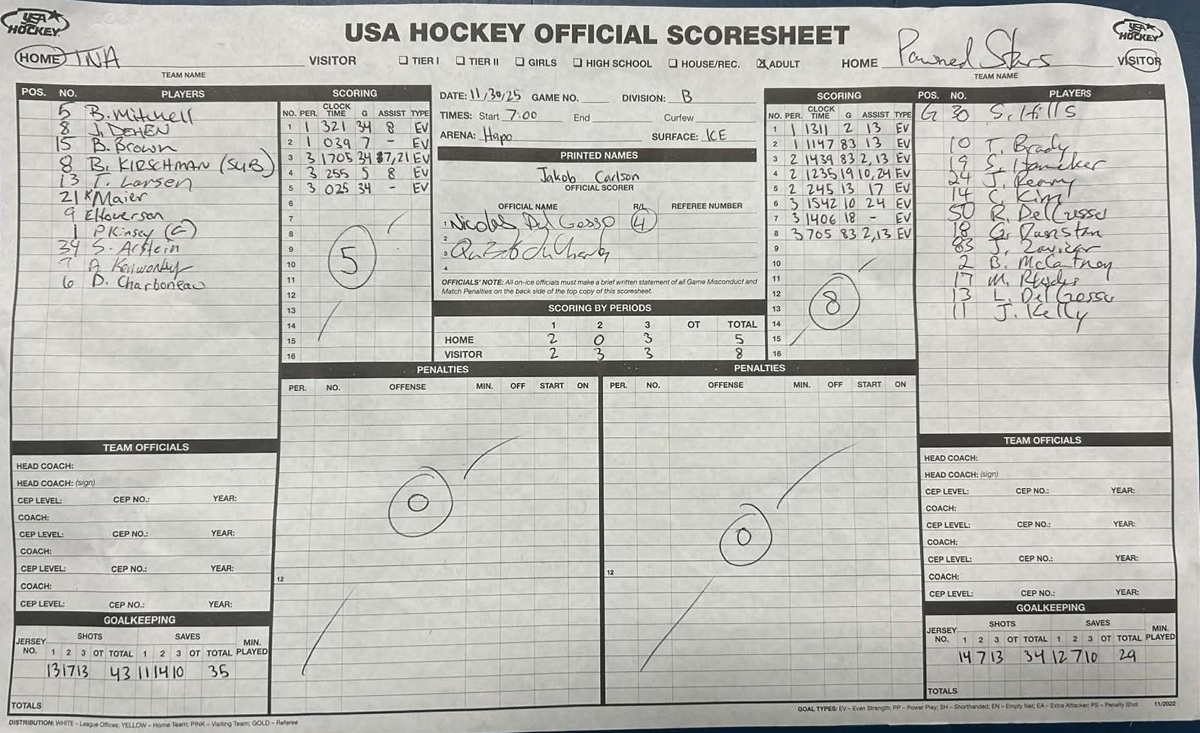 USA HOCKEY
USA HOCKEY OFFICIAL SCORESHEET
USA HOCKEY
HOME TNA VISITOR ☐ TIER I ☐ TIER II ☐ GIRLS ☐ HIGH SCHOOL ☐ HOUSE/REC. ☒ ADULT HOME Pawned Stars VISITOR
TEAM NAME
TEAM NAME
POS. NO. PLAYERS
5 B. Mitchell
8 J. DEHEN
15 B. Brown
8 B. KIRSCHMAN (SUB)
13 T. Larsen
21 K Maier
9 E Hoverson
1 P Kinsey (G)
34 S. Arstein
7 A Kenworthy
6 D. Charboneau
SCORING
NO. PER. CLOCK TIME G ASSIST TYPE
1 1 321 34 8 EV
2 1 039 7 - EV
3 3 1705 34 7,21 EV
4 3 255 5 8 EV
5 3 025 34 - EV
6
7
8
9
10
11
12
13
14
15
16
5
DATE: 11/30/25 GAME NO. DIVISION: B
TIMES: Start 7:00 End Curfew
ARENA: Hapo SURFACE: ICE
PRINTED NAMES
Jakob Carlson
OFFICIAL SCORER
OFFICIAL NAME R/L REFEREE NUMBER
1 Nicolas Del Grosso 4
2
3
4
OFFICIALS' NOTE: All on-ice officials must make a brief written statement of all Game Misconduct and
Match Penalties on the back side of the top copy of this scoresheet.
SCORING BY PERIODS
1 2 3 OT TOTAL
HOME 2 0 3 5
VISITOR 2 3 3 8
SCORING
NO. PER. CLOCK TIME G ASSIST TYPE
1 1 1311 2 13 EV
2 1 1147 83 13 EV
3 2 1439 83 2,13 EV
4 2 1235 19 10,24 EV
5 2 245 13 17 EV
6 3 1542 10 24 EV
7 3 1406 18 - EV
8 3 705 83 2,13 EV
9
10
11
12
13
14
15
16
8
POS. NO. PLAYERS
G 30 S. Hills
10 T. Brady
19 S. Hamaker
24 J. Kenny
14 S. Kim
50 R. Del Grosso
18 G.
83 J.
2 B. McCartney
17 M. Rhodes
13 L. Del Grosso
11 J. Kelly
PENALTIES
PER. NO. OFFENSE MIN. OFF START ON
0
12
PENALTIES
PER. NO. OFFENSE MIN. OFF START ON
0
12
TEAM OFFICIALS
HEAD COACH:
HEAD COACH: (sign)
CEP LEVEL: CEP NO.: YEAR:
COACH:
CEP LEVEL: CEP NO.: YEAR:
COACH:
CEP LEVEL: CEP NO.: YEAR:
COACH:
CEP LEVEL: CEP NO.: YEAR:
GOALKEEPING
JERSEY NO. SHOTS SAVES MIN. PLAYED
1 2 3 OT TOTAL 1 2 3 OT TOTAL
13 17 13 43 11 14 10 35
TOTALS
TEAM OFFICIALS
HEAD COACH:
HEAD COACH: (sign)
CEP LEVEL: CEP NO.: YEAR:
COACH:
CEP LEVEL: CEP NO.: YEAR:
COACH:
CEP LEVEL: CEP NO.: YEAR:
COACH:
CEP LEVEL: CEP NO.: YEAR:
GOALKEEPING
JERSEY NO. SHOTS SAVES MIN. PLAYED
1 2 3 OT TOTAL 1 2 3 OT TOTAL
14 7 13 34 12 7 10 29
TOTALS
DISTRIBUTION: WHITE – League Offices; YELLOW – Home Team; PINK – Visiting Team; GOLD – Referee
GOAL TYPES: EV – Even Strength; PP – Power Play; SH – Shorthanded; EN – Empty Net; EA – Extra Attacker; PS – Penalty Shot 11/2022